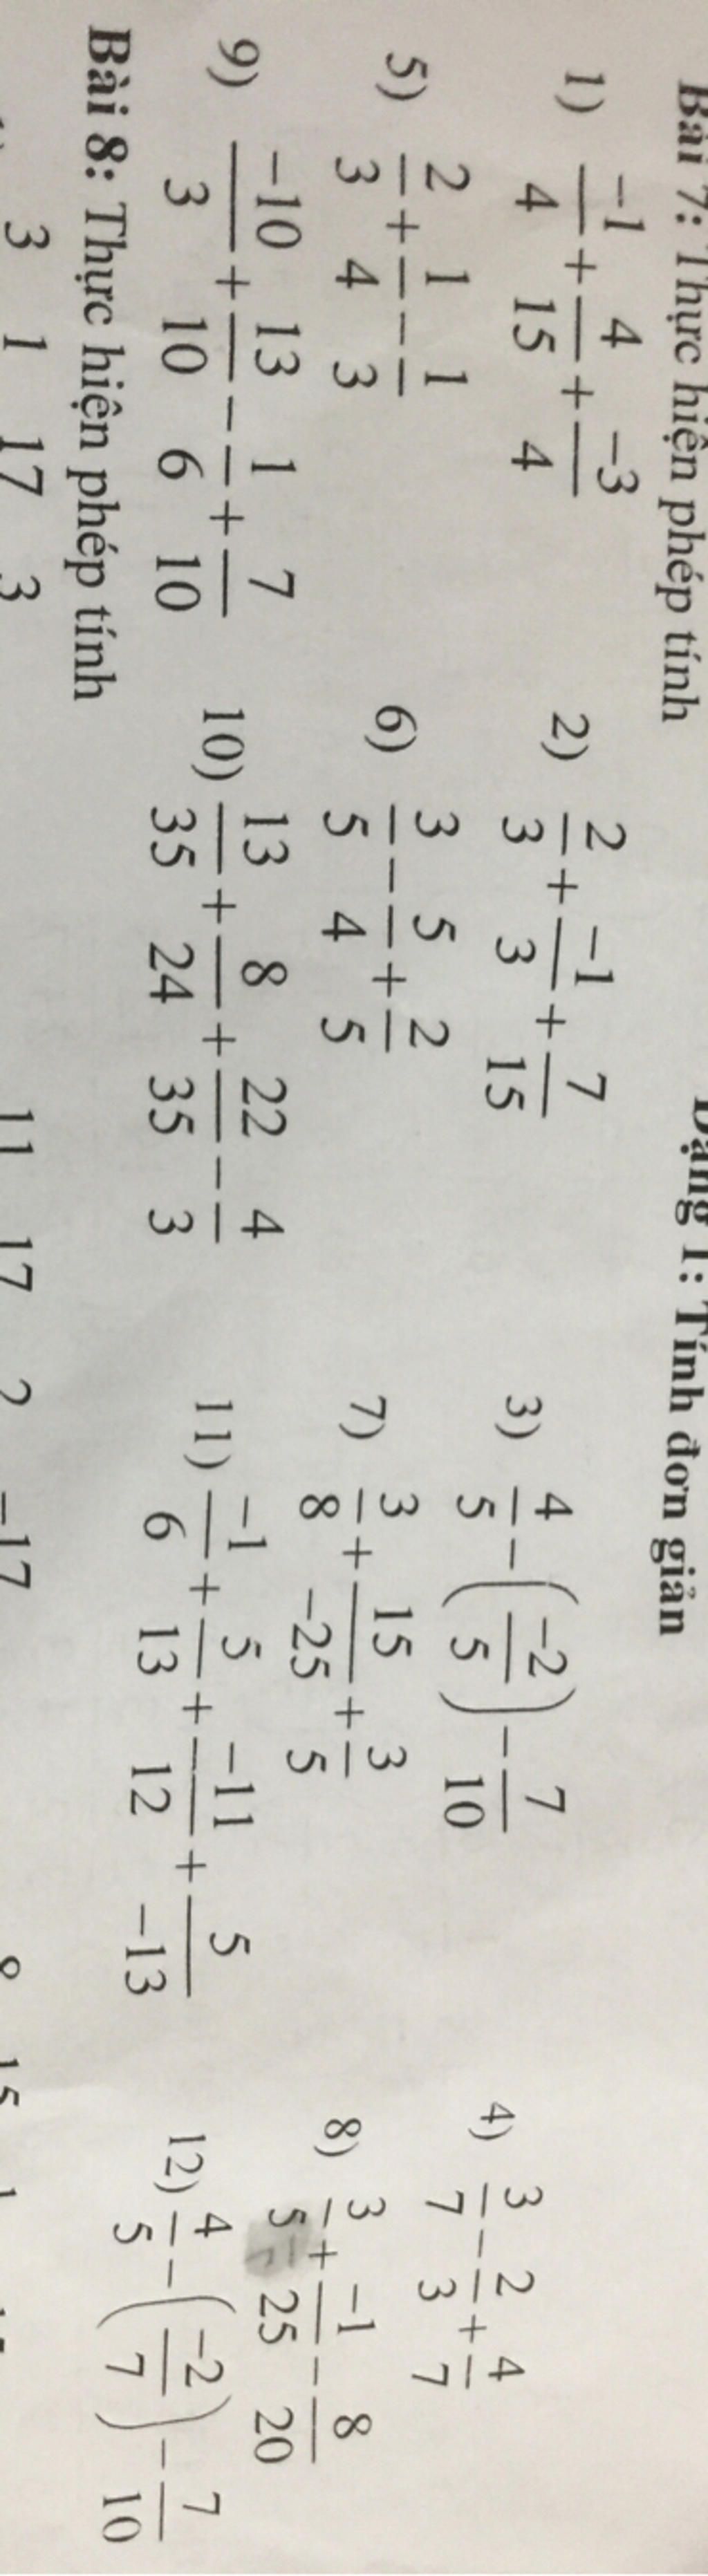 Dạng 1: Tính đơn giản
Bài 7: Thực hiện phép tính
1) -1/4 + 4/15 + -3/4 2) 2/3 + -1/3 + 7/15 3) 4/5 - (-2/5) - 7/10 4) 3/7 - 2/3 + 4/7
5) 2/3 + 1/4 - 1/3 6) 3/5 - 5/4 + 2/5 7) 3/8 + 15/-25 + 3/5 8) 3/5 + -1/25 - 8/20
9) -10/3 + 13/10 - 1/6 + 7/10 10) 13/35 + 8/24 + 22/35 - 4/3 11) -1/6 + 5/13 + -11/12 + 5/-13 12) 4/5 - (-2/7) - 7/10
Bài 8: Thực hiện phép tính
3 1 17 3 11 17 2 -17